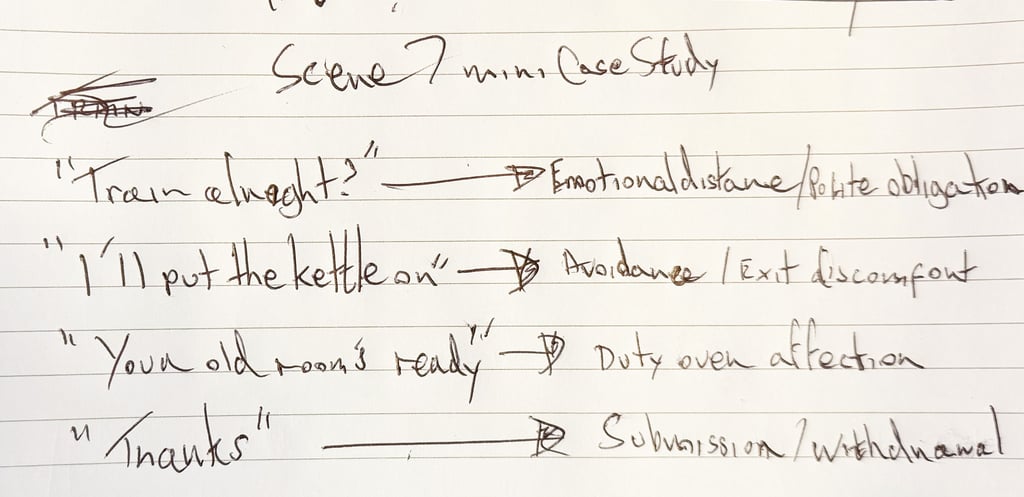 Scene 7 mini Case Study
"Train alright?" → Emotional distane/Polite obligation
"I'll put the kettle on" → Avoidance / Exit discomfort
"Your old room's ready" → Duty over affection
"Thanks" → Submission/Withdrawal